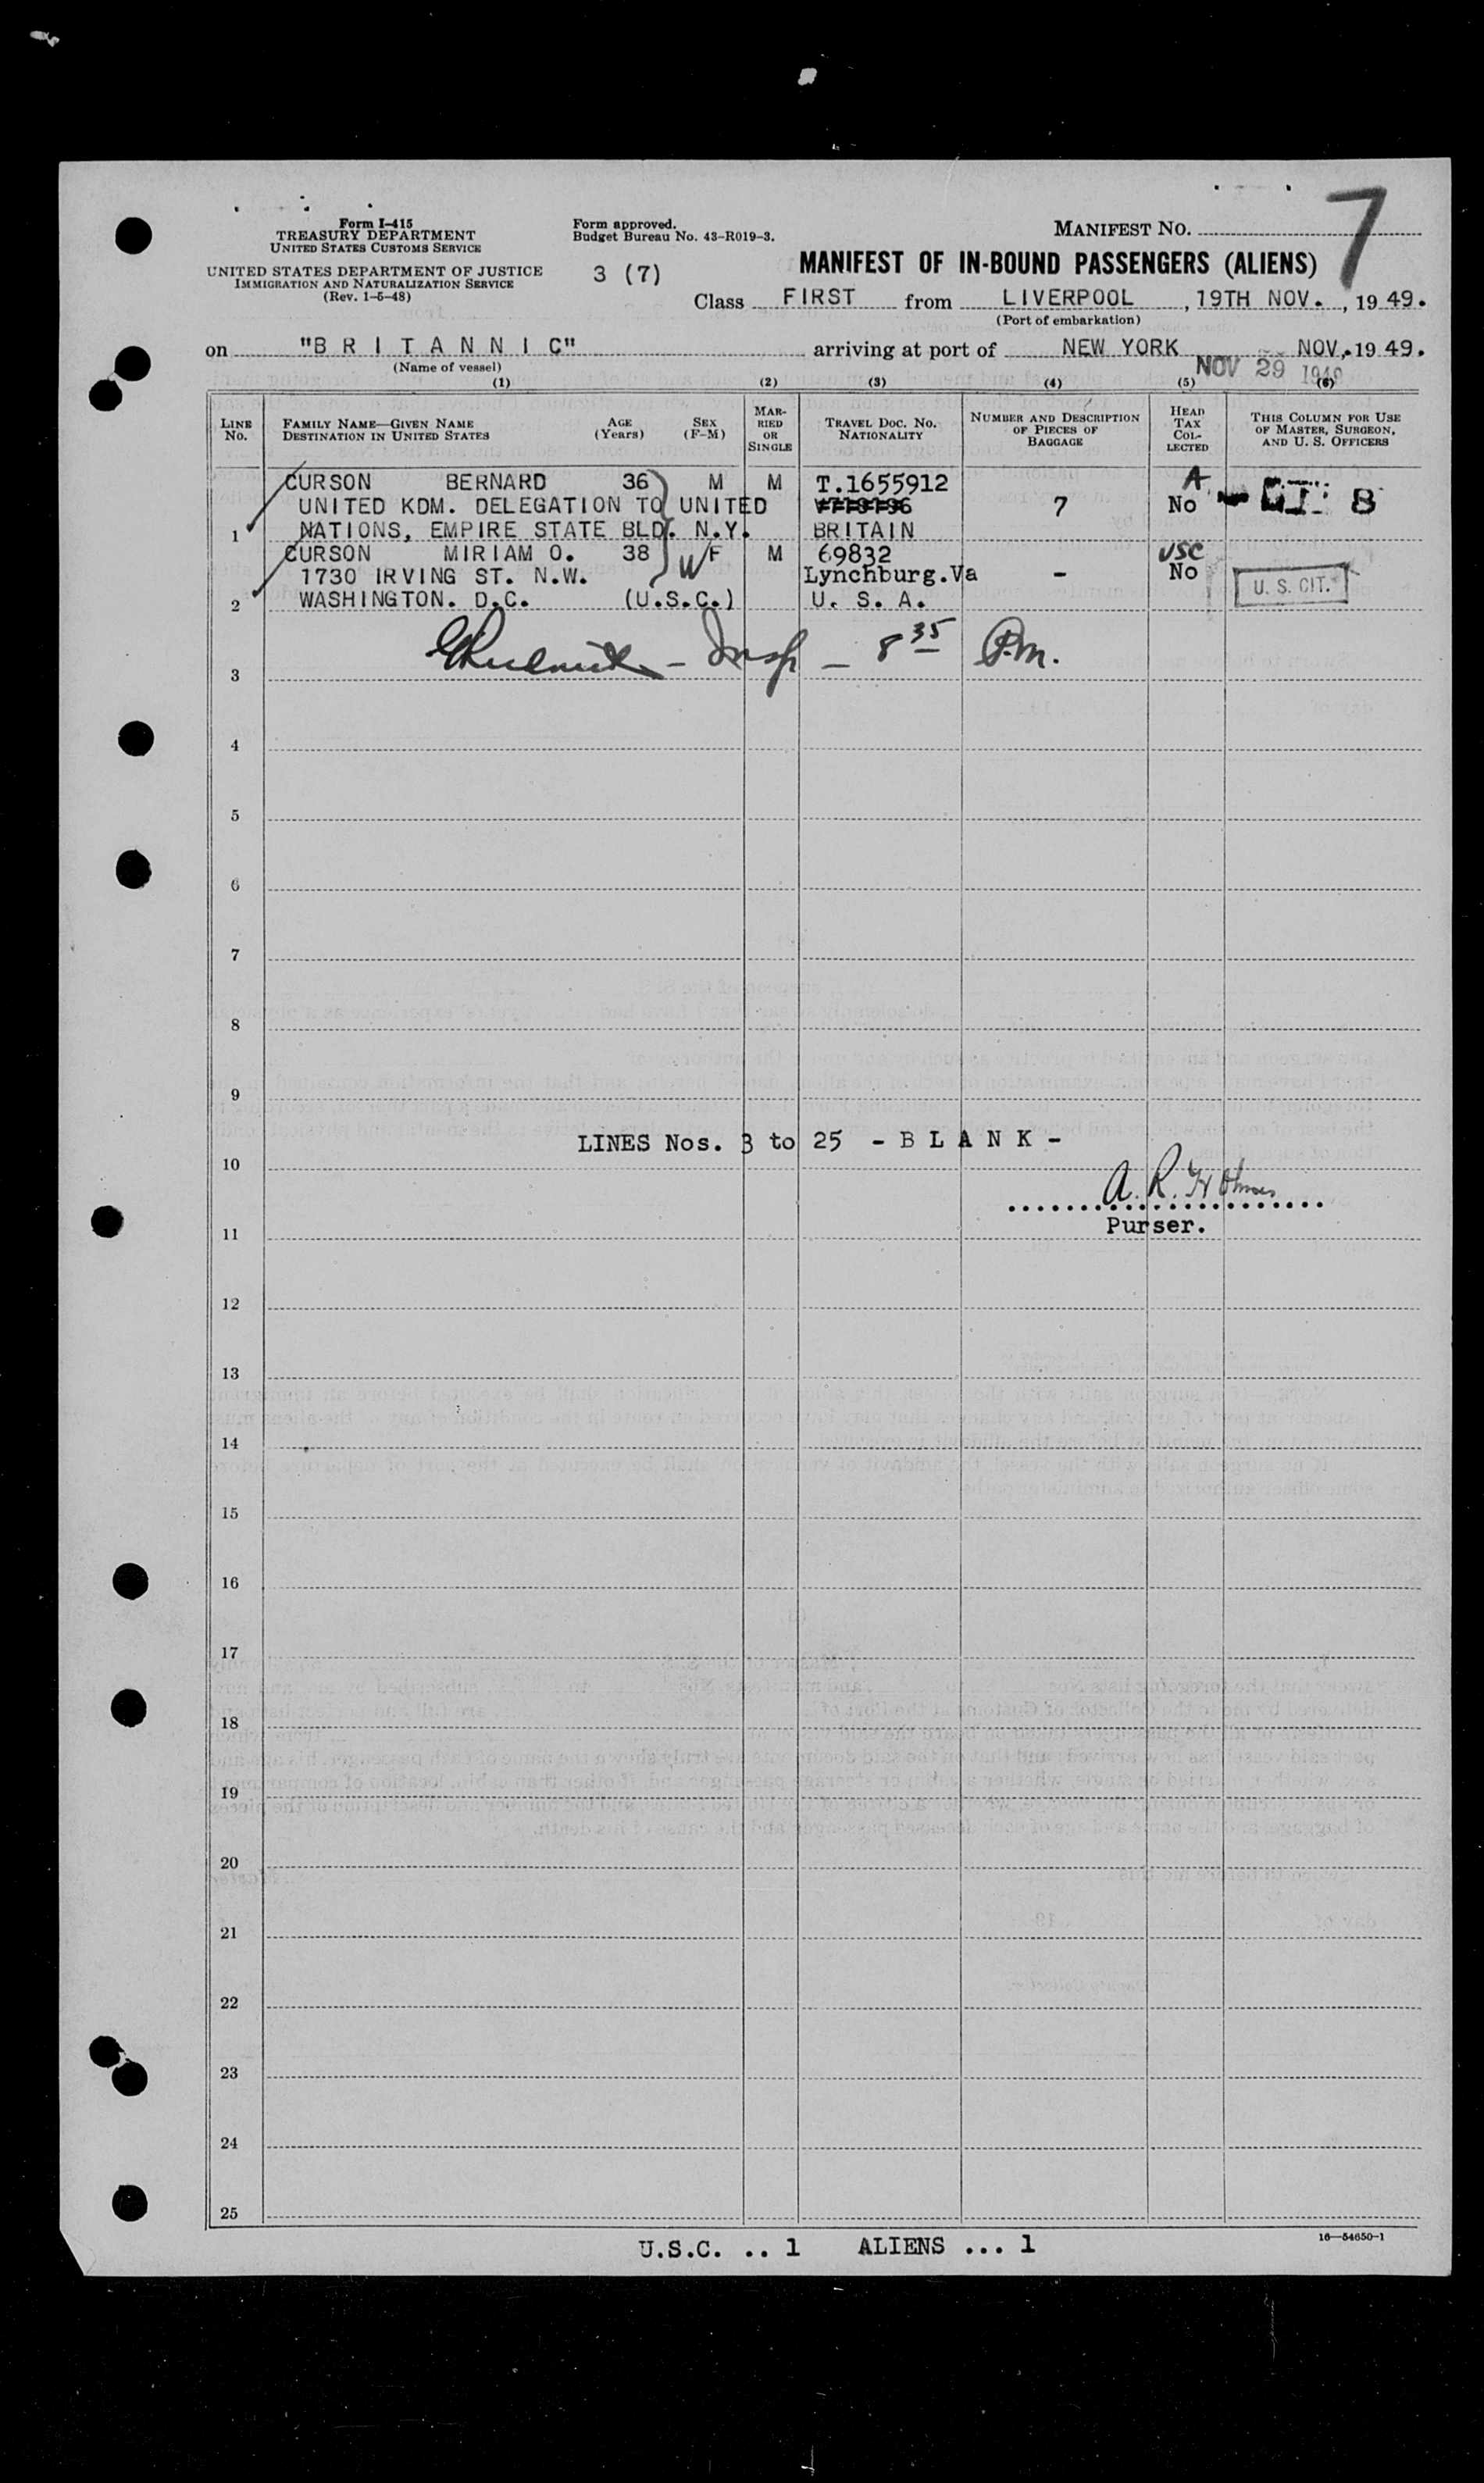 Form I-415
TREASURY DEPARTMENT
UNITED STATES CUSTOMS SERVICE
UNITED STATES DEPARTMENT OF JUSTICE
IMMIGRATION AND NATURALIZATION SERVICE
(Rev. 1-5-48)
Form approved.
Budget Bureau No. 43-R019-3.
3 (7)
MANIFEST NO. 7
MANIFEST OF IN-BOUND PASSENGERS (ALIENS)
Class FIRST from LIVERPOOL, 19TH NOV., 19 49.
(Port of embarkation)
on "B R I T A N N I C" arriving at port of NEW YORK NOV, 19 49.
(Name of vessel)
NOV 29 1949
(1) (2) (3) (4) (5) (6)
LINE No.
FAMILY NAME—GIVEN NAME
DESTINATION IN UNITED STATES
AGE (Years)
SEX (F-M)
MARRIED OR SINGLE
TRAVEL DOC. NO.
NATIONALITY
NUMBER AND DESCRIPTION OF PIECES OF BAGGAGE
HEAD TAX COLLECTED
THIS COLUMN FOR USE OF MASTER, SURGEON, AND U. S. OFFICERS
CURSON BERNARD 36 M M T.1655912 A
UNITED KDM. DELEGATION TO UNITED 7 No 8
1 NATIONS, EMPIRE STATE BLD. N.Y. BRITAIN
CURSON MIRIAM O. 38 W F M 69832 USC
1730 IRVING ST. N.W. Lynchburg.Va - No U. S. CIT.
2 WASHINGTON. D.C. (U.S.C.) U. S. A.
- Insp - 8 35 P.m.
3
4
5
6
7
8
9
LINES Nos. 3 to 25 - B L A N K -
10
A. R. Holmes
Purser.
11
12
13
14
15
16
17
18
19
20
21
22
23
24
25
U.S.C. .. 1 ALIENS ... 1
16—54650-1